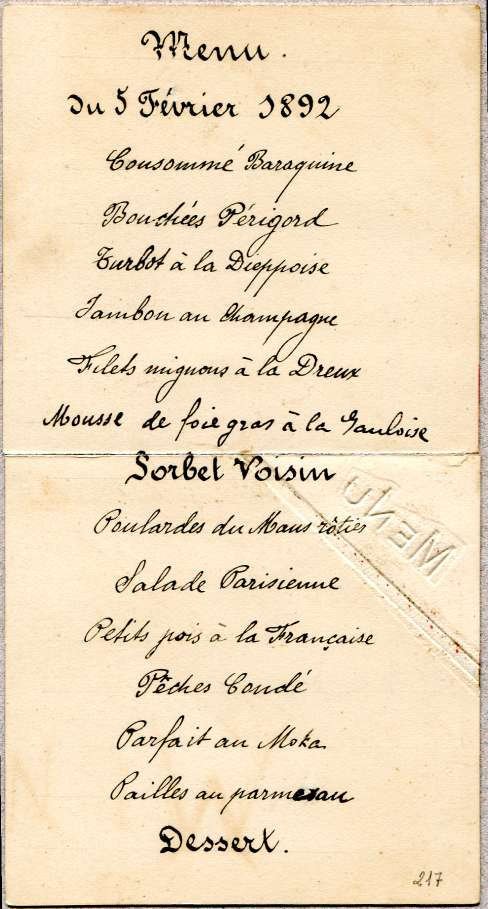 Menu.
du 5 Février 1892
Consommé Baraquine
Bouchées Périgord
Turbot à la Dieppoise
Jambon au Champagne
Filets mignons à la Dreux
Mousse de foie gras à la Gauloise
Sorbet Voisin
MENU
Poulardes du Mans rôties
Salade Parisienne
Petits pois à la Française
Pêches Condé
Parfait au Moka
Pailles au parmesan
Dessert.
217